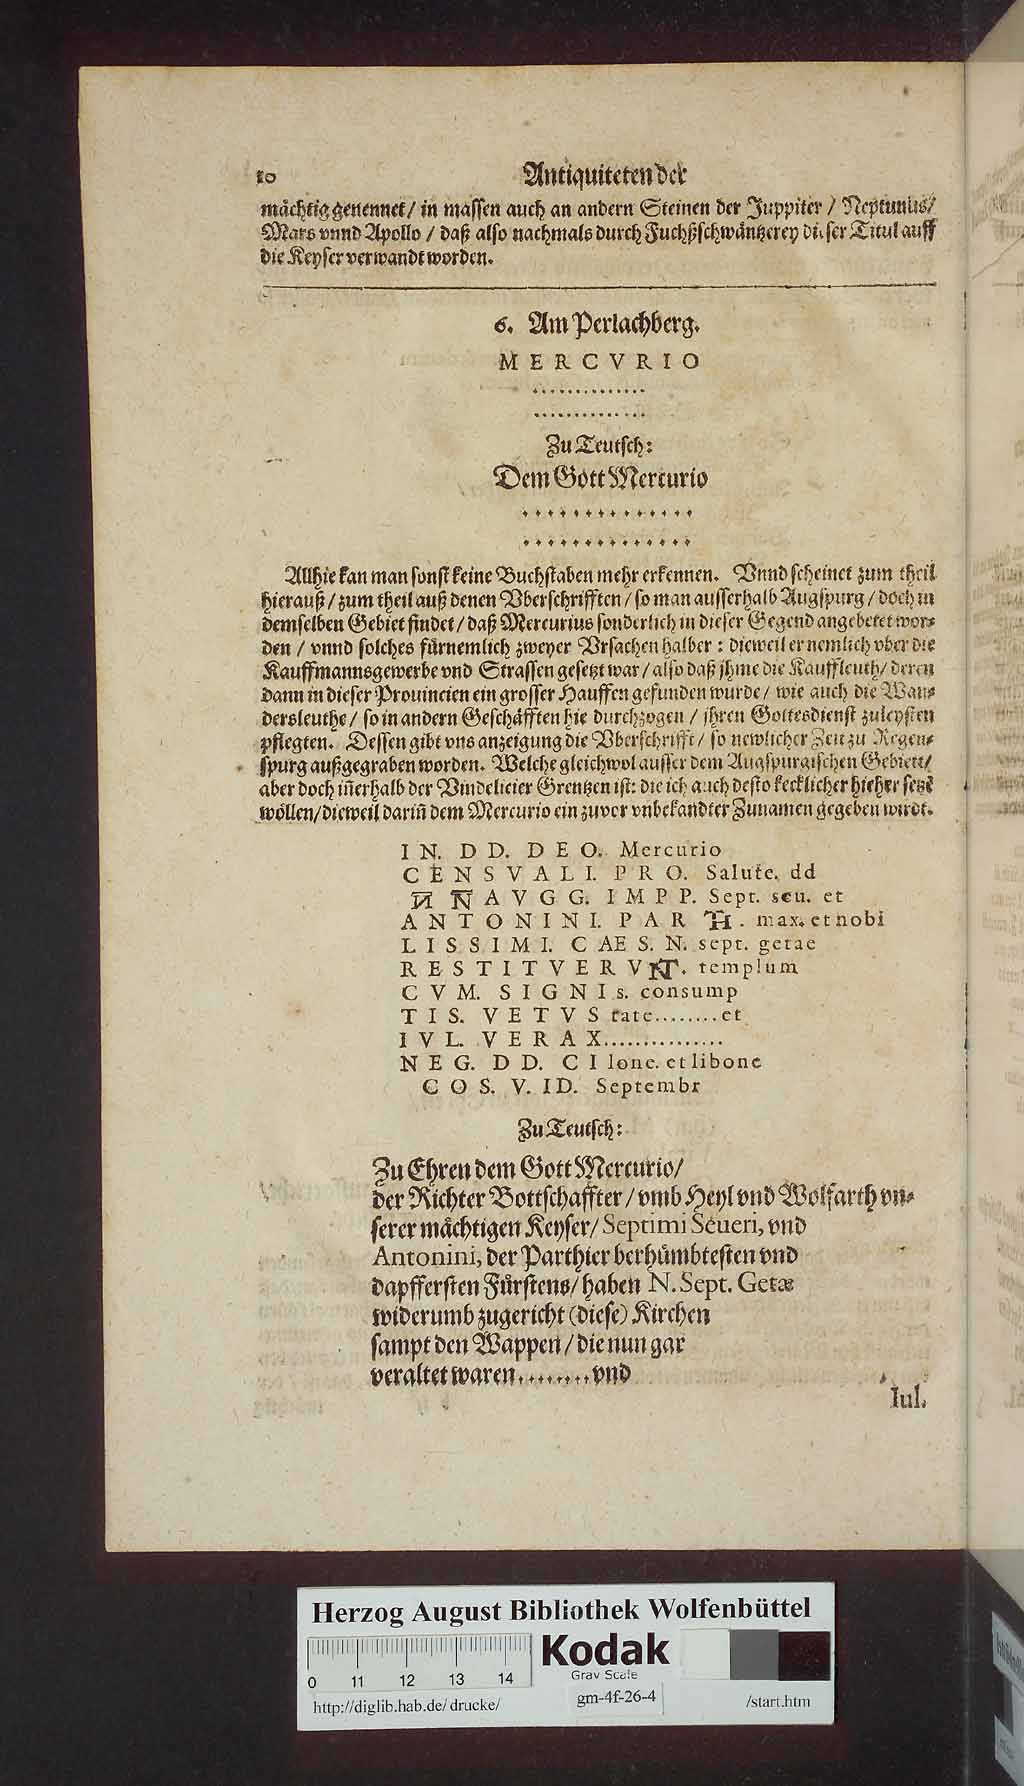 10 Antiquiteten der
mächtig genennet / in massen auch an andern Steinen der Juppiter / Neptunus /
Mars vnnd Apollo / daß also nachmals durch Fuchßschwäntzerey dieser Titul auff
die Keyser verwandt worden.
6. Am Perlachberg.
MERCVRIO
..............
..............
Zu Teutsch:
Dem Gott Mercurio
..............
..............
Allhie kan man sonst keine Buchstaben mehr erkennen. Vnnd scheinet zum theil
hierauß / zum theil auß denen Vberschrifften / so man ausserhalb Augspurg / doch in
demselben Gebiet findet / daß Mercurius sonderlich in dieser Gegend angebetet wor-
den / vnnd solches fürnemlich zweyer Vrsachen halber : dieweil er nemlich vber die
Kauffmannsgewerbe vnd Strassen gesetzt war / also daß jhme die Kauffleuth / deren
dann in dieser Prouincien ein grosser Hauffen gefunden wurde / wie auch die Wan-
dersleuthe / so in andern Geschäfften hie durchzogen / jhren Gottesdienst zuleysten
pflegten. Dessen gibt vns anzeigung die Vberschrifft / so newlicher Zeit zu Regen-
spurg außgegraben worden. Welche gleichwol ausser dem Augspurgischen Gebiett /
aber doch iñerhalb der Vindelicier Grentzen ist: die ich auch desto kecklicher hieher setzē
wöllen / dieweil dariñ dem Mercurio ein zuvor vnbekandter Zunamen gegeben wirdt.
IN. DD. DEO. Mercurio
CENSVALI. PRO. Salute. dd
N̅ N̅ AVGG. IMPP. Sept. seu. et
ANTONINI. PAR TH. max. et nobi
LISSIMI. CAES. N. sept. getae
RESTITVERVNT. templum
CVM. SIGNIs. consump
TIS. VETVS tate........et
IVL. VERAX...............
NEG. DD. CI lone. et libone
COS. V. ID. Septembr
Zu Teutsch:
Zu Ehren dem Gott Mercurio /
der Richter Bottschaffter / vmb Heyl vnd Wolfarth vn-
serer mächtigen Keyser / Septimi Seueri, vnd
Antonini, der Parthier berhümbtesten vnd
dapffersten Fürstens / haben N. Sept. Getæ
widerumb zugericht (diese) Kirchen
sampt den Wappen / die nun gar
veraltet waren........vnd
Iul.
Herzog August Bibliothek Wolfenbüttel
Kodak
Gray Scale
0 11 12 13 14
http://diglib.hab.de/drucke/ gm-4f-26-4 /start.htm